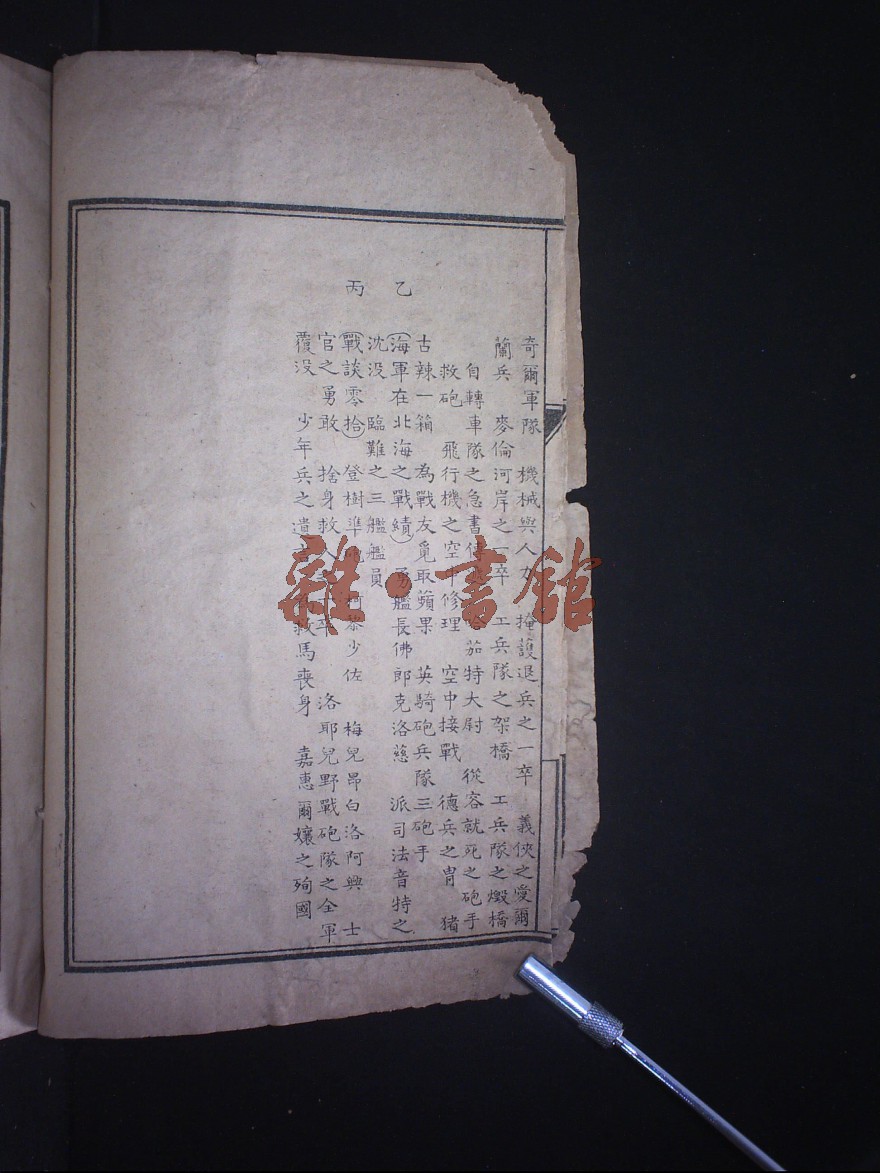 奇爾軍隊　機械與人力　掩護退兵之一卒　義俠之愛爾
蘭兵　麥倫河岸之一卒　工兵隊之架橋　工兵隊之燬橋
自轉車隊之急書傳　茄特大尉　從容就死之砲手
救砲　飛行機之空中修理　空中接戰　德兵之冑　猪
古辣一箱　為戰友覓取蘋果　英騎砲兵隊三砲手
乙　(海軍在北海之戰績)　勇艦長佛郎克洛慈　派司法音特之
沈没　臨難之三艦艦員
丙　(戰談零拾)　登樹準　少佐　梅兒昂白洛阿興　士
官之勇敢　捨身救人　卒　洛耶兒野戰砲隊之全軍
覆没　少年兵之遺　救馬喪身　嘉惠爾孃之殉國
雜·書館